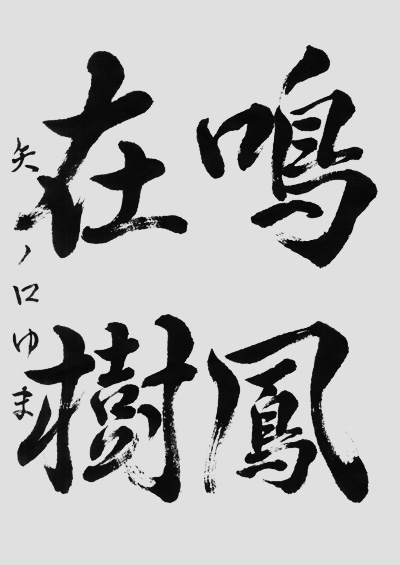 鳴鳳
在樹
矢ノ口ゆま